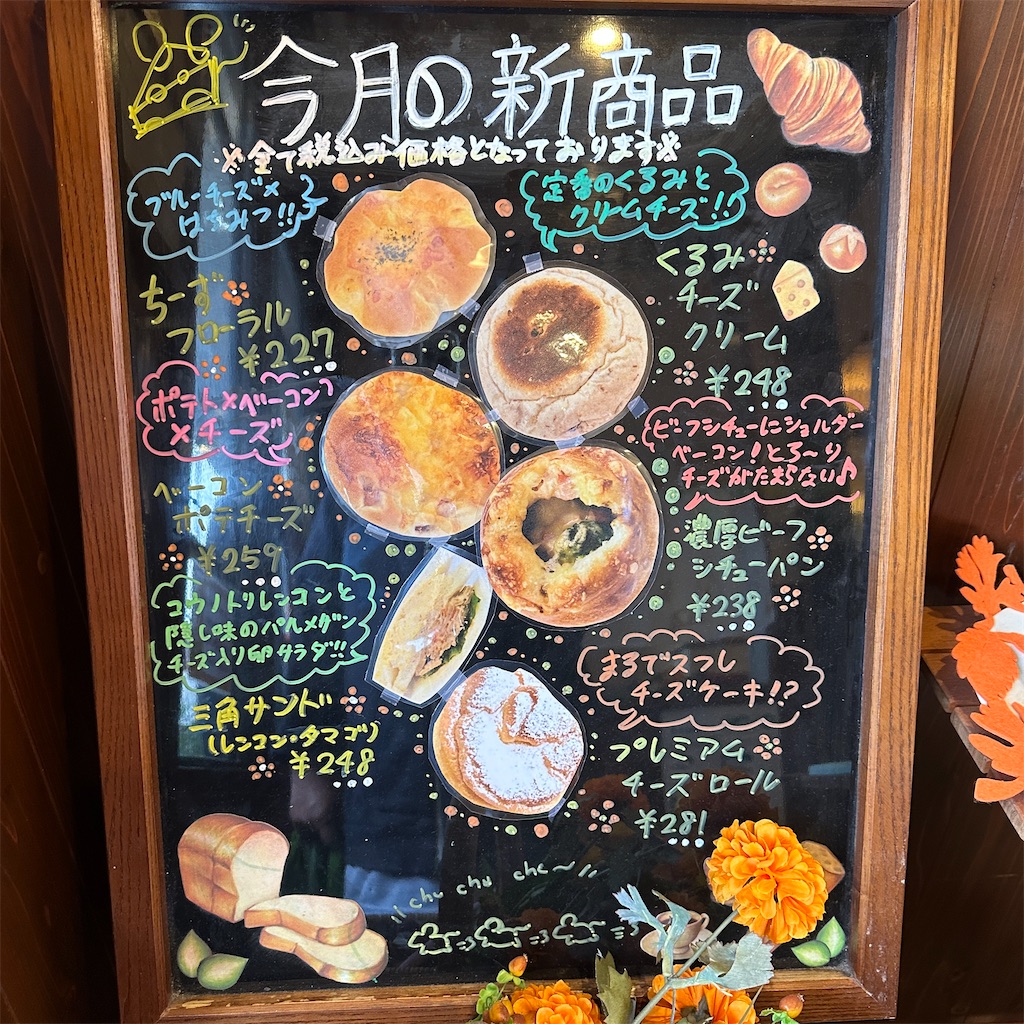 今月の新商品
※全て税込み価格となっております※
ブルーチーズ×
はちみつ!!
ちーず
フローラル
¥227
ポテト×ベーコン
×チーズ
ベーコン
ポテチーズ
¥259
コウノトリレンコンと
隠し味のパルメザン
チーズ入り卵サラダ!!
三角サンド
(レンコン・タマゴ)
¥248
定番のくるみと
クリームチーズ!!
くるみ
チーズ
クリーム
¥248
ビーフシチューにショルダー
ベーコン!とろ〜り
チーズがたまらない♪
濃厚ビーフ
シチューパン
¥238
まるでスフレ
チーズケーキ!?
プレミアム
チーズロール
¥281
chu chu chu〜